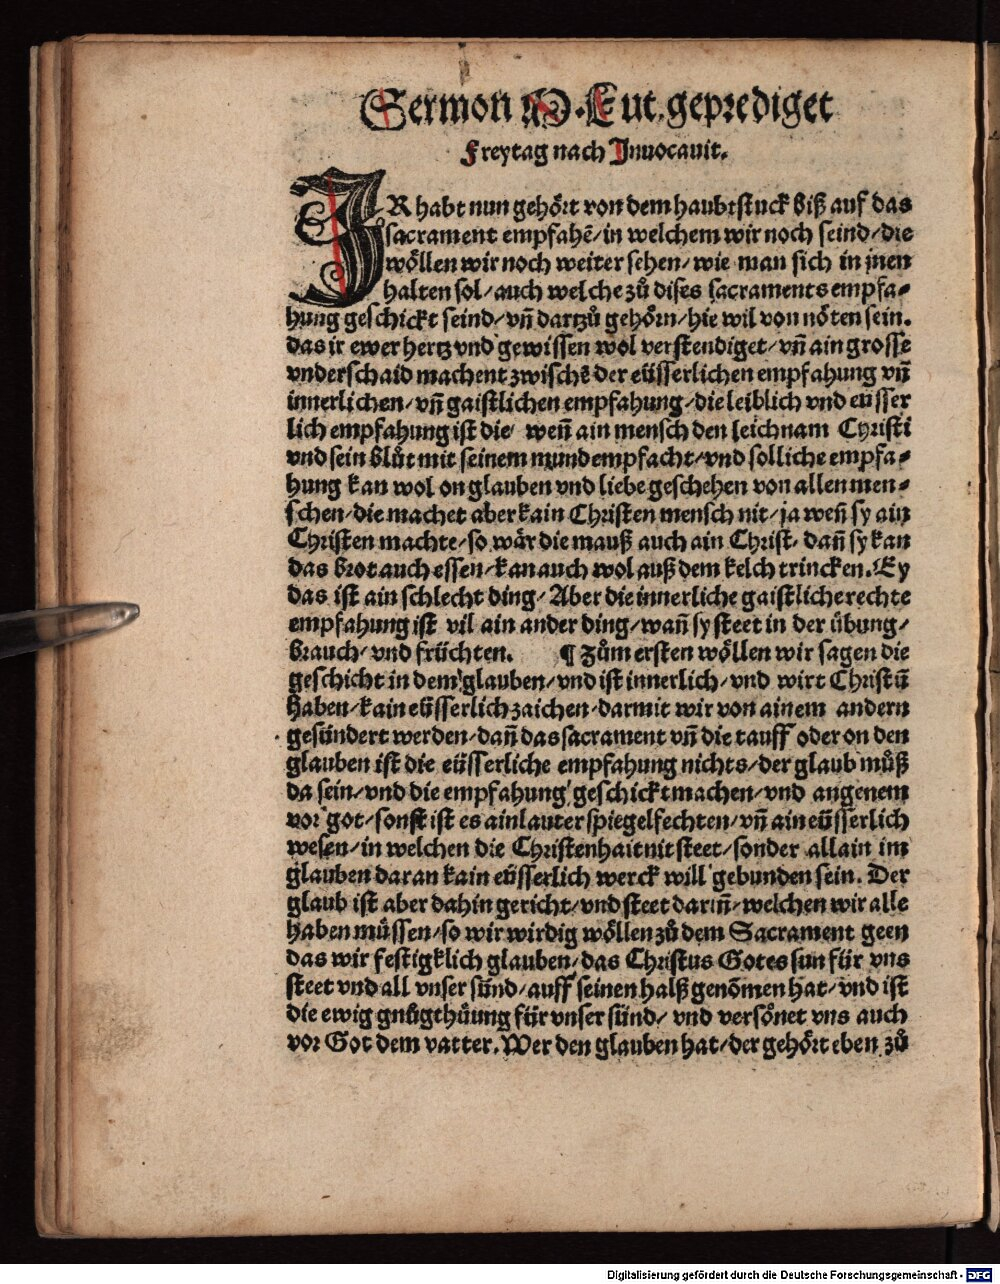 Sermon M. Lut. geprediget
Freytag nach Inuocauit.
IR habt nun gehört von dem haubtstuck biß auf das
sacrament empfahē/ in welchem wir noch seind/ die
wöllen wir noch weiter sehen/ wie man sich in jnen
halten sol/ auch welche zů dises sacraments empfa⸗
hung geschickt seind/ vñ dartzů gehörn/ hie wil von nöten sein.
das ir ewer hertz vnd gewissen wol verstendiget/ vñ ain grosse
vnderschaid machent zwischē der eüsserlichen empfahung vñ
innerlichen/ vñ gaistlichen empfahung/ die leiblich vnd eüsser
lich empfahung ist die/ weñ ain mensch den leichnam Christi
vnd sein blůt mit seinem mund empfacht/ vnd solliche empfa⸗
hung kan wol on glauben vnd liebe geschehen von allen men⸗
schen/ die machet aber kain Christen mensch nit/ ja weñ sy ain
Christen machte/ so wär die mauß auch ain Christ/ dañ sy kan
das brot auch essen/ kan auch wol auß dem kelch trincken. Ey
das ist ain schlecht ding/ Aber die innerliche gaistliche rechte
empfahung ist vil ain ander ding/ wañ sy steet in der übung/
brauch/ vnd früchten. ¶ Zům ersten wöllen wir sagen die
geschicht in dem glauben/ vnd ist innerlich/ vnd wirt Christū
haben/ kain eüsserlich zaichen/ darmit wir von ainem andern
gesündert werden/ dañ das sacrament vñ die tauff oder on den
glauben ist die eüsserliche empfahung nichts/ der glaub můß
da sein/ vnd die empfahung geschickt machen/ vnd angenem
vor got/ sonst ist es ain lauter spiegelfechten/ vñ ain eüsserlich
wesen/ in welchen die Christenhait nit steet/ sonder allain im
glauben daran kain eüsserlich werck will gebunden sein. Der
glaub ist aber dahin gericht/ vnd steet dariñ/ welchen wir alle
haben müssen/ so wir wirdig wöllen zů dem Sacrament geen
das wir festigklich glauben/ das Christus Gotes sun für vns
steet vnd all vnser sünd/ auff seinen halß genōmen hat/ vnd ist
die ewig gnůgthüung für vnser sünd/ vnd versönet vns auch
vor Got dem vatter. Wer den glauben hat/ der gehört eben zů
Digitalisierung gefördert durch die Deutsche Forschungsgemeinschaft - DFG